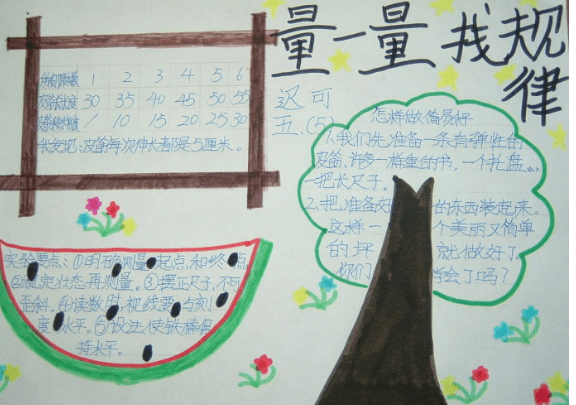 量一量 找规律
迟可
五.(5)
1 2 3 4 5 6
皮筋长度 30 35 40 45 50 55
1 10 15 20 25 30
我发现:皮筋每次伸长都是5厘米。
怎样做简易秤
1.我们先准备一条有弹性的
皮筋、许多一样重的书,一个托盘。
一把长尺子。
2.把准备好的东西装起来。
这样一个美丽又简单
的坪就做好了,
你们学会了吗?
实验要点:①明确测量起点和终点
②稳定状态再测量。③摆正尺子,不可
歪斜。④读数时视线要与刻
度水平。⑤设法使铁棒保
持水平。